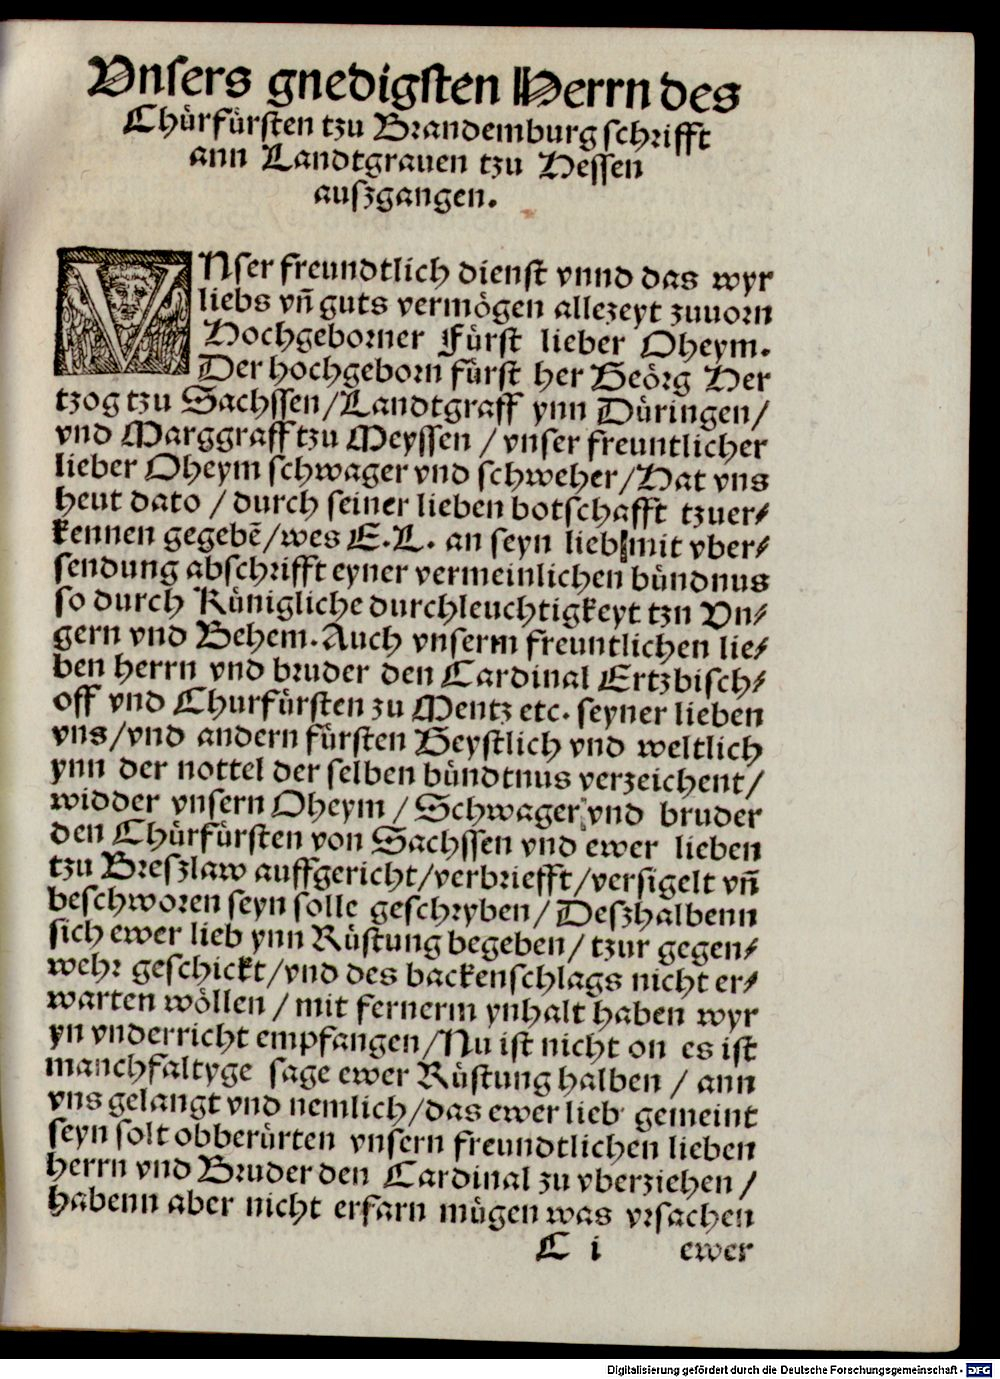 Vnsers gnedigsten Herrn des
Chürfürsten tzu Brandemburg schrifft
ann Landtgrauen tzu Hessen
auszgangen.
VNser freundtlich dienst vnnd das wyr
liebs vn̄ guts vermögen allezeyt zuuorn
Hochgeborner Fürst lieber Oheym.
Der hochgeborn fürst her Geörg Her
tzog tzu Sachssen/Landtgraff ynn Düringen/
vnd Marggraff tzu Meyssen / vnser freuntlicher
lieber Oheym schwager vnd schweher/Hat vns
heut dato / durch seiner lieben botschafft tzuer⸗
kennen gegebē/wes E.L. an seyn lieb mit vber⸗
sendung abschrifft eyner vermeinlichen bündnus
so durch Künigliche durchleuchtigkeyt tzn Vn⸗
gern vnd Behem. Auch vnserm freuntlichen lie⸗
ben herrn vnd bruder den Cardinal Ertzbisch⸗
off vnd Churfürsten zu Mentz etc. seyner lieben
vns/vnd andern fürsten Geystlich vnd weltlich
ynn der nottel der selben bündtnus verzeichent/
widder vnsern Oheym / Schwager vnd bruder
den Chürfürsten von Sachssen vnd ewer lieben
tzu Breszlaw auffgericht/verbriefft/versigelt vn̄
beschworen seyn solle geschryben/ Deszhalbenn
sich ewer lieb ynn Rüstung begeben/ tzur gegen⸗
wehr geschickt/vnd des backenschlags nicht er⸗
warten wöllen / mit fernerm ynhalt haben wyr
yn vnderricht empfangen/Nu ist nicht on es ist
manchfaltyge sage ewer Rüstung halben / ann
vns gelangt vnd nemlich/das ewer lieb gemeint
seyn solt obberürten vnsern freundtlichen lieben
herrn vnd Bruder den Cardinal zu vberziehen /
habenn aber nicht erfarn mügen was vrsachen
C i ewer
Digitalisierung gefördert durch die Deutsche Forschungsgemeinschaft - DFG